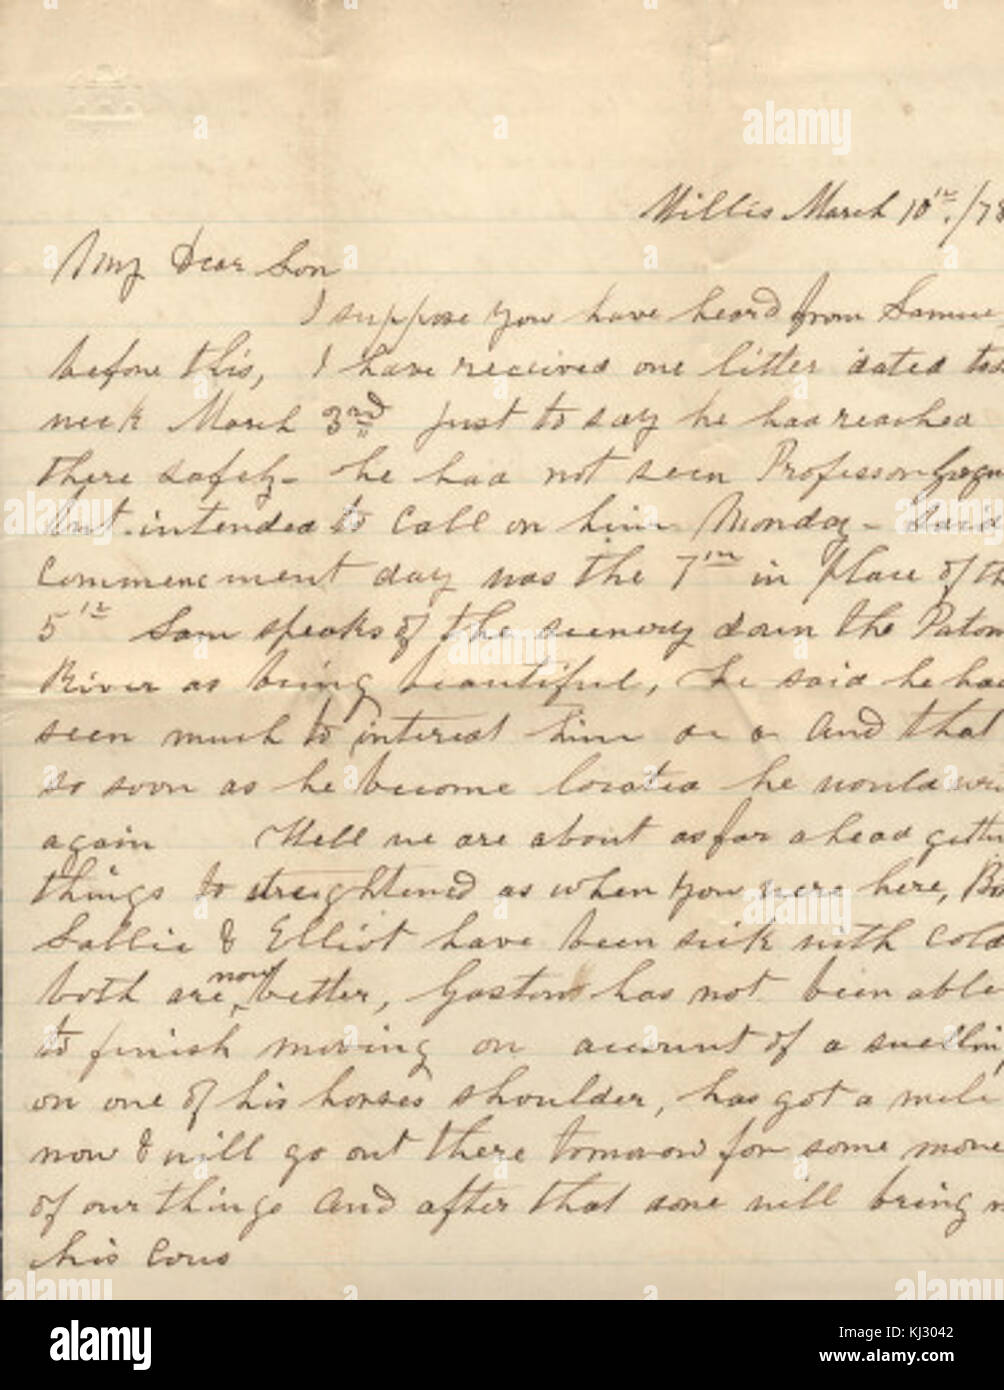 Willis March 10th/78
My Dear Son
I suppose you have heard from Samue
before this, I have received one litter dated
week March 3rd just to say he had reached
there safely - he had not seen Professor
but intended to call on him Monday -
Commencement day was the 7th in place of th
5th Sam speaks of the scenery down the Potom
River as being beautiful, he said he had
seen much to interest him and that
so soon as he become located he would wri
again Well we are about as far a head gettin
things to streightened as when you were here,
Sallie & Elliot have been sick with cold
both are now better, Gaston has not been able
to finish moving on account of a swellin
on one of his horses shoulder, has got a mule
now & will go out there tomorow for some more
of our things and after that some will bring
his cows
alamy
Image ID: KJ3042
www.alamy.com